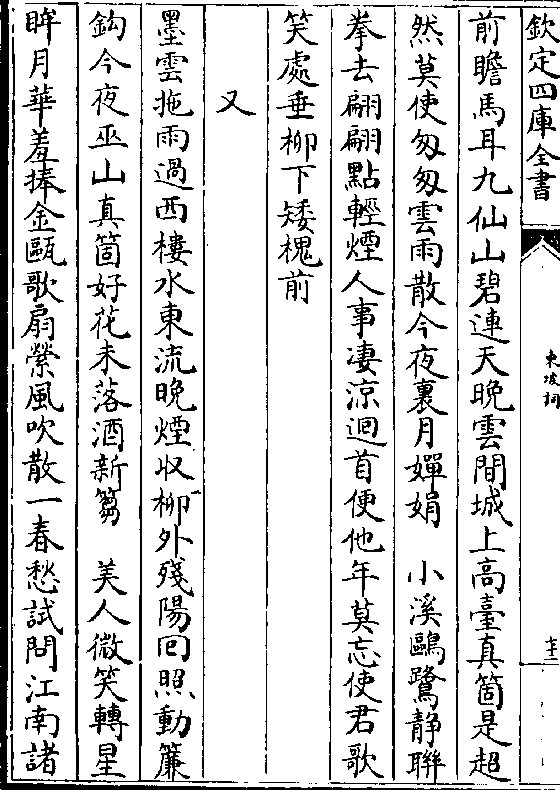 欽定四庫全書
東坡詞
前瞻馬耳九仙山碧連天晚雲間城上高臺真箇是超
然莫使匆匆雲雨散今夜裏月嬋娟　小溪鷗鷺静聯
拳去翩翩點輕煙人事凄涼迴首便他年莫忘使君歌
笑處垂柳下矮槐前
又
墨雲拖雨過西樓水東流晚煙収柳外殘陽回照動簾
鈎今夜巫山真箇好花未落酒新篘　美人微笑轉星
眸月華羞捧金甌歌扇縈風吹散一春愁試問江南諸